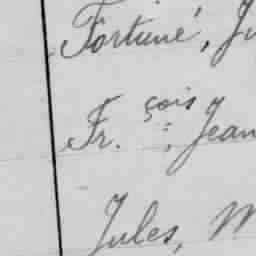 Fortuné, Ju
Fr. çois, Jean
Jules, M